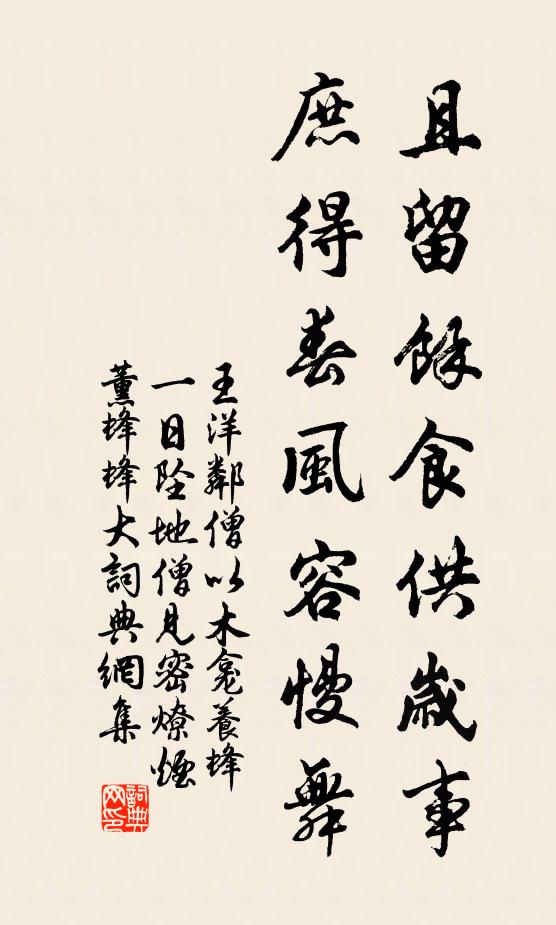 且留餘食供歲事
庶得春風容慢舞
王洋鄰僧以木龕養蜂
一日墜地僧見密燎煙
薰蜂蜂大詞典網集